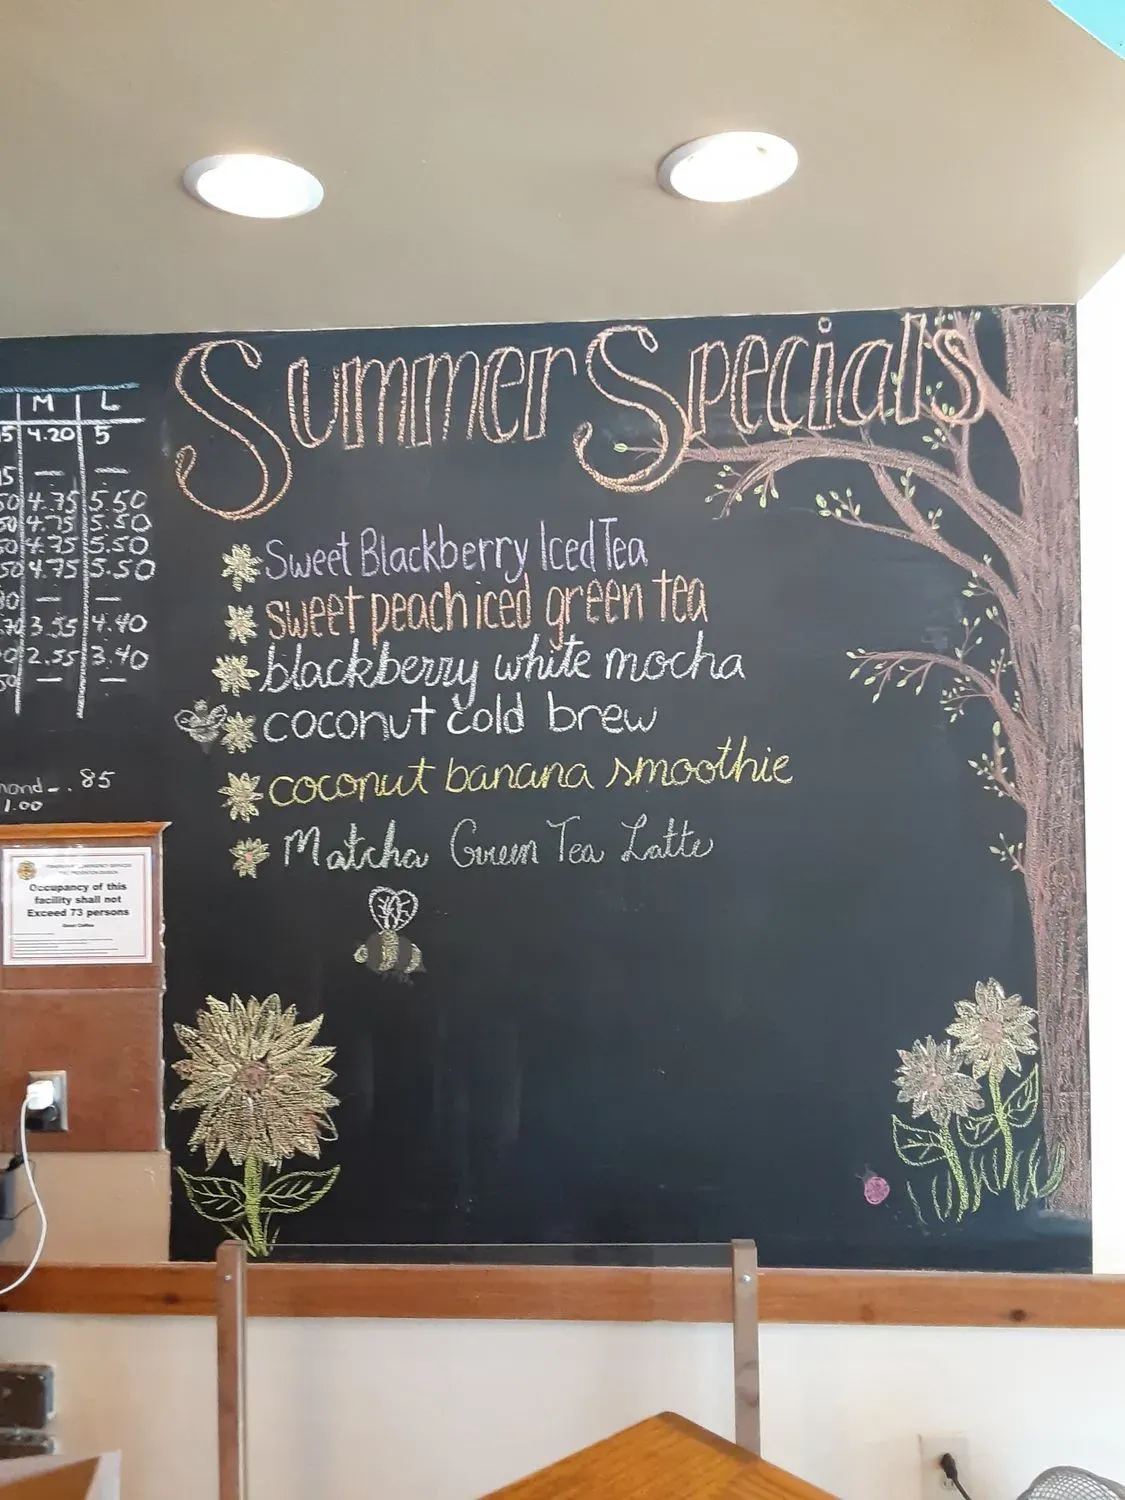 Summer Specials
Sweet Blackberry Iced Tea
sweet peach iced green tea
blackberry white mocha
coconut cold brew
coconut banana smoothie
Matcha Green Tea Latte
M L
4.20 5
— —
4.75 5.50
4.75 5.50
4.75 5.50
4.75 5.50
— —
3.55 4.40
2.55 3.40
— —
.85
1.00
Occupancy of this
facility shall not
Exceed 73 persons